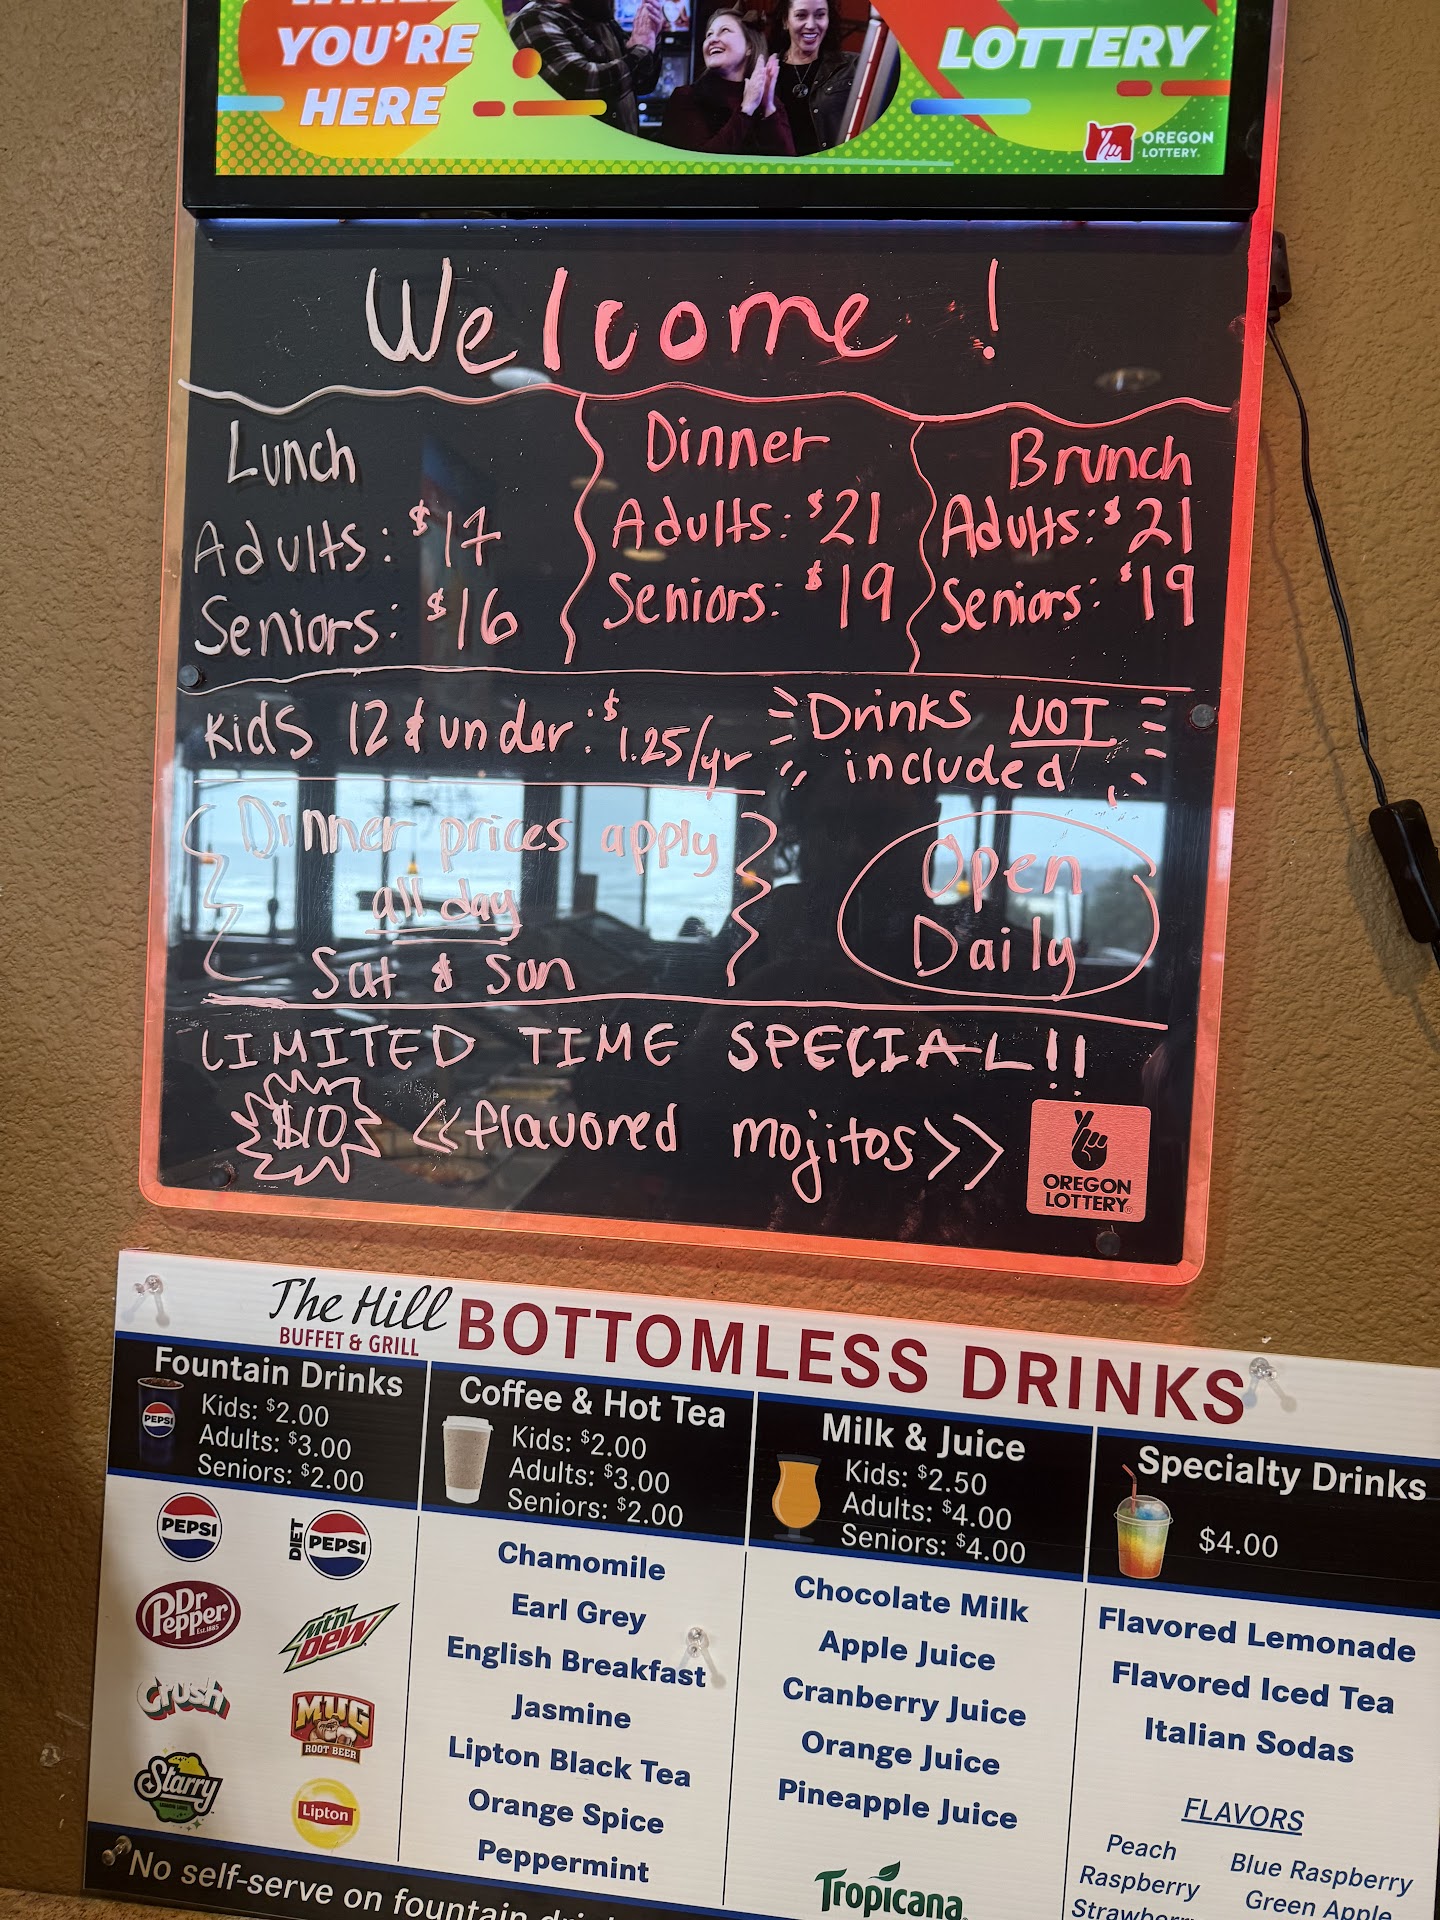 YOU'RE
HERE
LOTTERY
OREGON
LOTTERY.
Welcome!
Lunch
Adults: $17
Seniors: $16
Dinner
Adults: $21
Seniors: $19
Brunch
Adults: $21
Seniors: $19
Kids 12 & under: $1.25/yr
Drinks NOT
included
Dinner prices apply
all day
Sat & Sun
Open
Daily
LIMITED TIME SPECIAL!!
$10 <<flavored mojitos>>
OREGON
LOTTERY®
The Hill
BUFFET & GRILL
BOTTOMLESS DRINKS
Fountain Drinks
Kids: $2.00
Adults: $3.00
Seniors: $2.00
PEPSI
PEPSI
DIET PEPSI
Dr Pepper
EST. 1885
mtn DEW
Crush
MUG
ROOT BEER
Starry
Lipton
Coffee & Hot Tea
Kids: $2.00
Adults: $3.00
Seniors: $2.00
Chamomile
Earl Grey
English Breakfast
Jasmine
Lipton Black Tea
Orange Spice
Peppermint
Milk & Juice
Kids: $2.50
Adults: $4.00
Seniors: $4.00
Chocolate Milk
Apple Juice
Cranberry Juice
Orange Juice
Pineapple Juice
Tropicana
Specialty Drinks
$4.00
Flavored Lemonade
Flavored Iced Tea
Italian Sodas
FLAVORS
Peach
Raspberry
Blue Raspberry
Green Apple
No self-serve on fountain